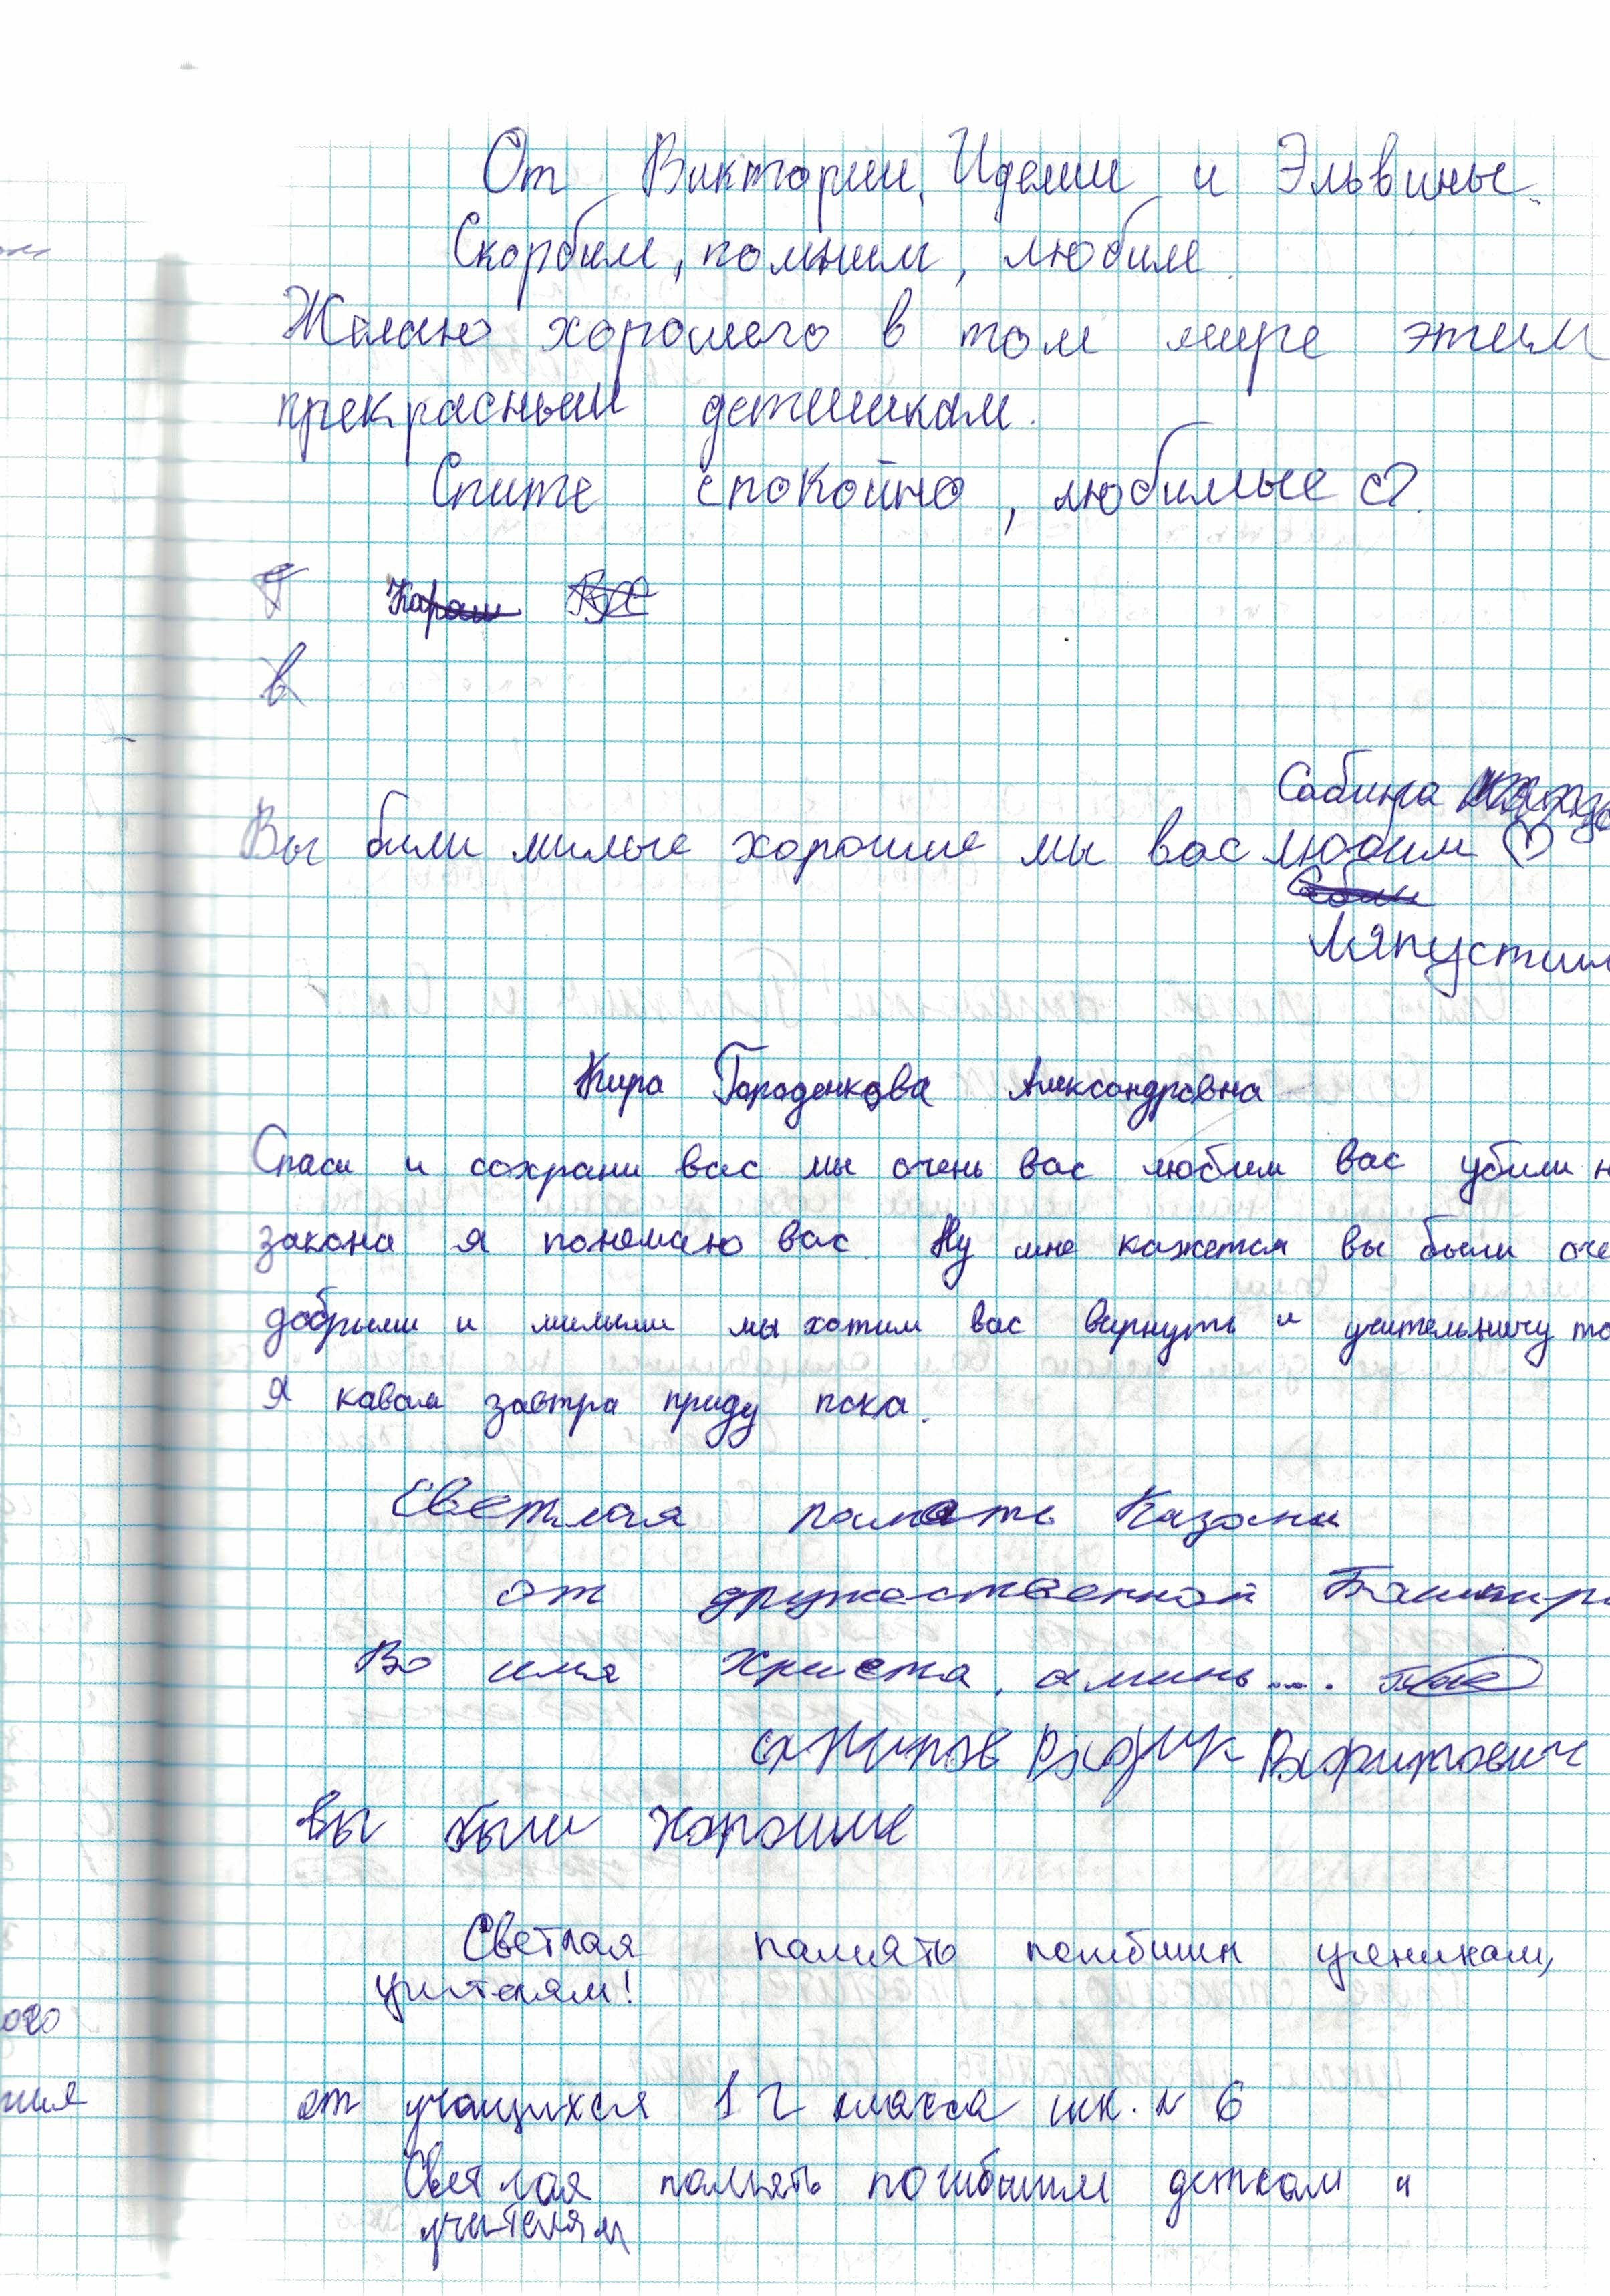 От Виктории, Иделии и Эльвины.
Скорбим, помним, любим.
Желаю хорошего в том мире этим
прекрасным детишкам.
Спите спокойно, любимые
Сабина
Вы били милые хорошие мы вас любим ♡
Ляпустин
Кира Городенкова Александровна
Спаси и сохрани вас мы очень вас любим вас убили н
закона я понемаю вас. Ну мне кажется вы были оче
добрыми и милыми мы хотим вас вернуть и учительницу то
Я кавам завтра приду пока.
Светлая память Казани
от дружественной Башкири
Во имя Христа, аминь....
Рафитович
вы были хорошие
Светлая память погибшим ученикам,
учителям!
ого
ния
от учащихся 1 Г класса шк. № 6
Светлая память погибшим деткам и
учителям